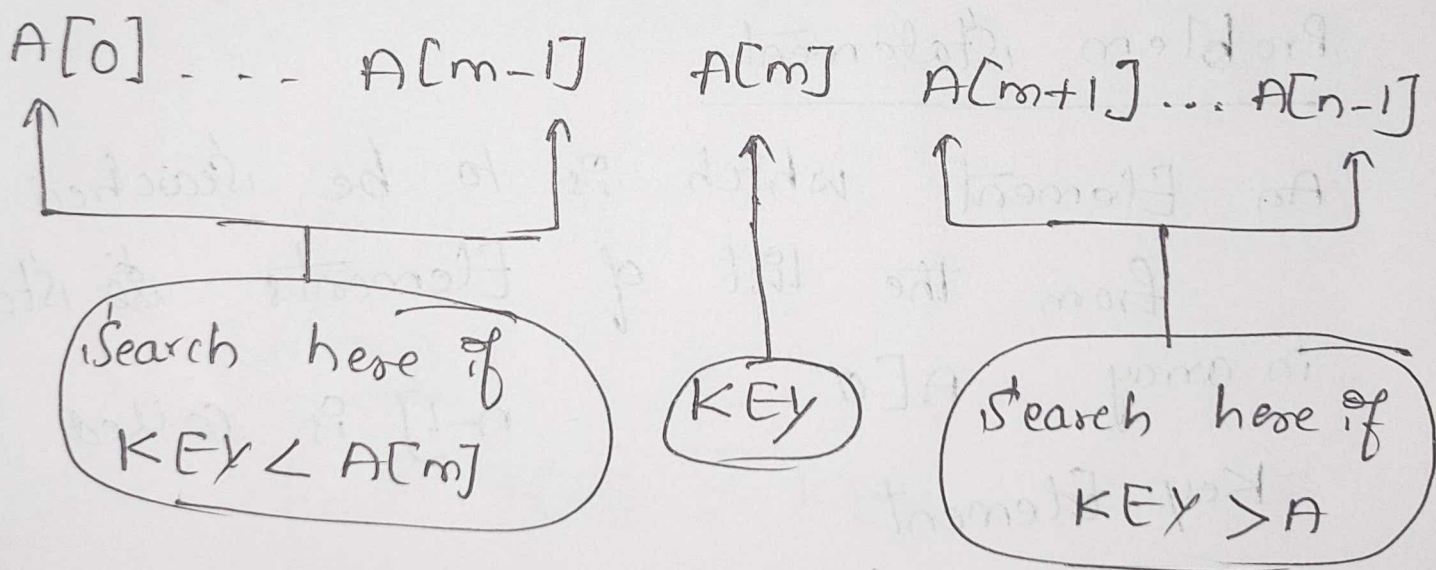 A[0] . - - A[m-1] A[m] A[m+1] ... A[n-1]
Search here if
KEY < A[m]
KEY
Search here if
KEY > A